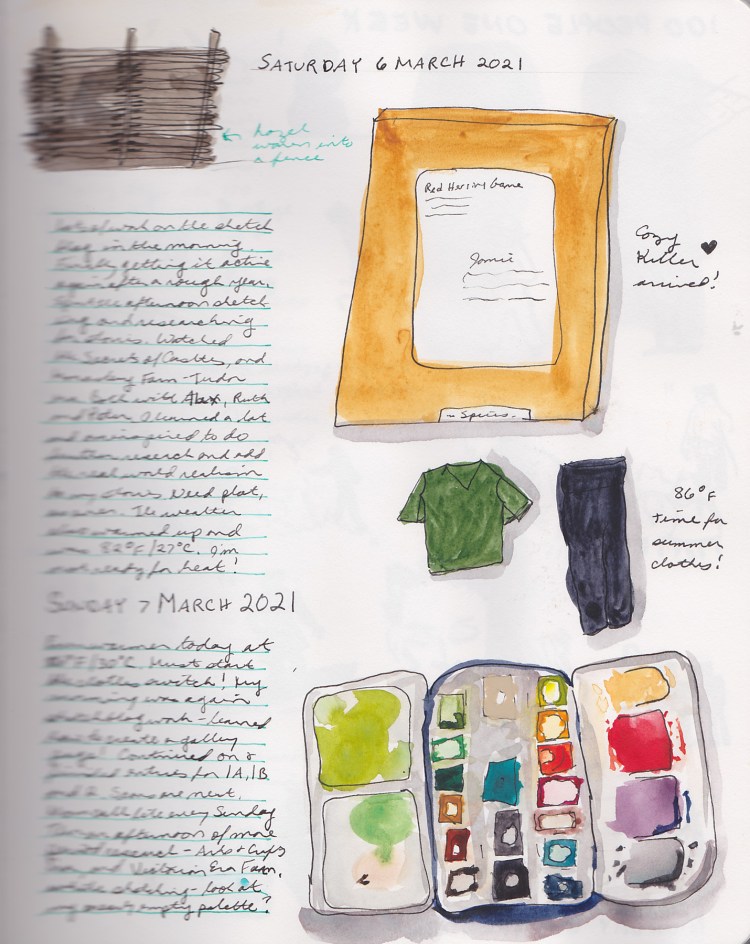 SATURDAY 6 MARCH 2021
hazel
woven into
a fence
work on the sketch
blog in the morning.
Finally getting it active
again after a rough year.
afternoon sketch
ing and researching
for stories. Watched
the Secrets of Castles, and
Farm - Tudor
Both with Alex, Ruth
and Peter. I learned a lot
and to do
research and add
real world realism
to my stories. Need plot,
The weather
also warmed up and
was 82°F/27°C. I'm
not ready for heat!
Red Herring Game
Jamie
- Species -
Cozy
Killer ♥
arrived!
86°F
time for
summer
clothes!
SUNDAY 7 MARCH 2021
today at
/30°C. Must start
the clothes switch! My
morning was again
sketchblog work - learned
how to create a gallery
page! Continued on &
entries for 1A, 1B
and 2. are next.
every Sunday
afternoon of more
research - Arts + Crafts
and Victorian Era Farm,
sketching - look at
my empty palette!